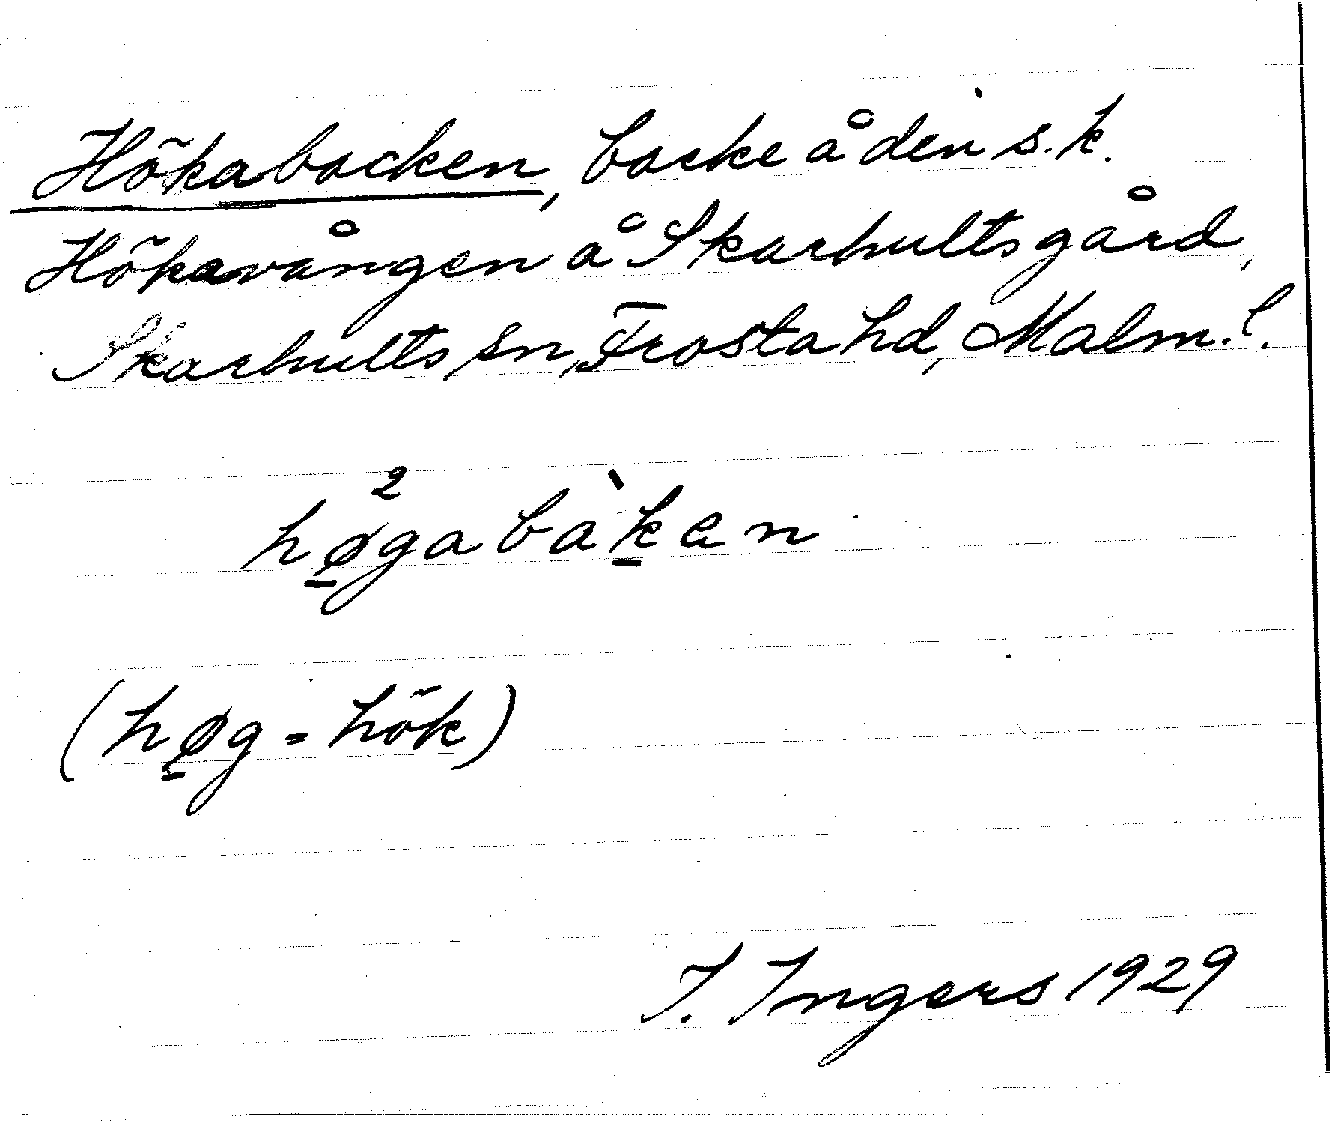 Hökabacken, backe å den s.k.
Hökavången å Skarhultsgård,
Skarhults sn, Frosta hd, Malm.l.
hø̠²gabàḵen
(hø̠g = hök)
I. Ingers 1929